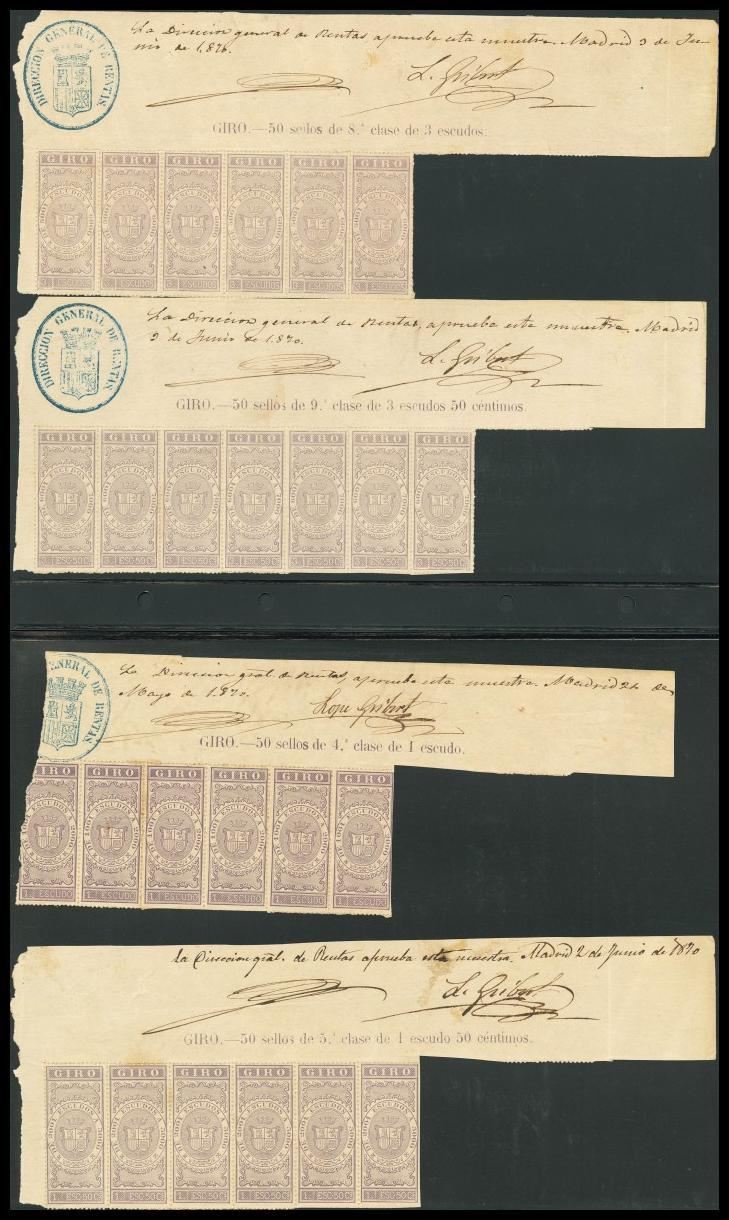 DIRECCION GENERAL DE RENTAS
La Direccion general de Rentas, aprueba esta muestra. Madrid 3 de Ju-
nio de 1.870.
L. Gribert
GIRO.—50 sellos de 8.ª clase de 3 escudos.
GIRO GIRO GIRO GIRO GIRO GIRO
ESCUDOS ESCUDOS ESCUDOS ESCUDOS ESCUDOS ESCUDOS
3 ESCUDOS 3 ESCUDOS 3 ESCUDOS 3 ESCUDOS 3 ESCUDOS 3 ESCUDOS
DIRECCION GENERAL DE RENTAS
La Direccion general de Rentas, aprueba esta muestra. Madrid
3 de Junio de 1.870.
L. Gribert
GIRO.—50 sellos de 9.ª clase de 3 escudos 50 céntimos.
GIRO GIRO GIRO GIRO GIRO GIRO GIRO
ESCUDOS ESCUDOS ESCUDOS ESCUDOS ESCUDOS ESCUDOS ESCUDOS
3 ESC·50C 3 ESC·50C 3 ESC·50C 3 ESC·50C 3 ESC·50C 3 ESC·50C 3 ESC·50C
ENERAL DE RENTAS
La Direccion gral. de Rentas, aprueba esta muestra. Madrid 24 de
Mayo de 1.870.
Lope Gribert
GIRO.—50 sellos de 4.ª clase de 1 escudo.
GIRO GIRO GIRO GIRO GIRO GIRO
ESCUDOS ESCUDOS ESCUDOS ESCUDOS ESCUDOS ESCUDOS
1. ESCUDO 1. ESCUDO 1. ESCUDO 1. ESCUDO 1. ESCUDO 1. ESCUDO
La Direccion gral. de Rentas aprueba esta muestra. Madrid 2 de Junio de 1870
L. Gribert
GIRO.—50 sellos de 5.ª clase de 1 escudo 50 céntimos.
GIRO GIRO GIRO GIRO GIRO GIRO
ESCUDOS ESCUDOS ESCUDOS ESCUDOS ESCUDOS ESCUDOS
1. ESC·50C 1. ESC·50C 1. ESC·50C 1. ESC·50C 1. ESC·50C 1. ESC·50C